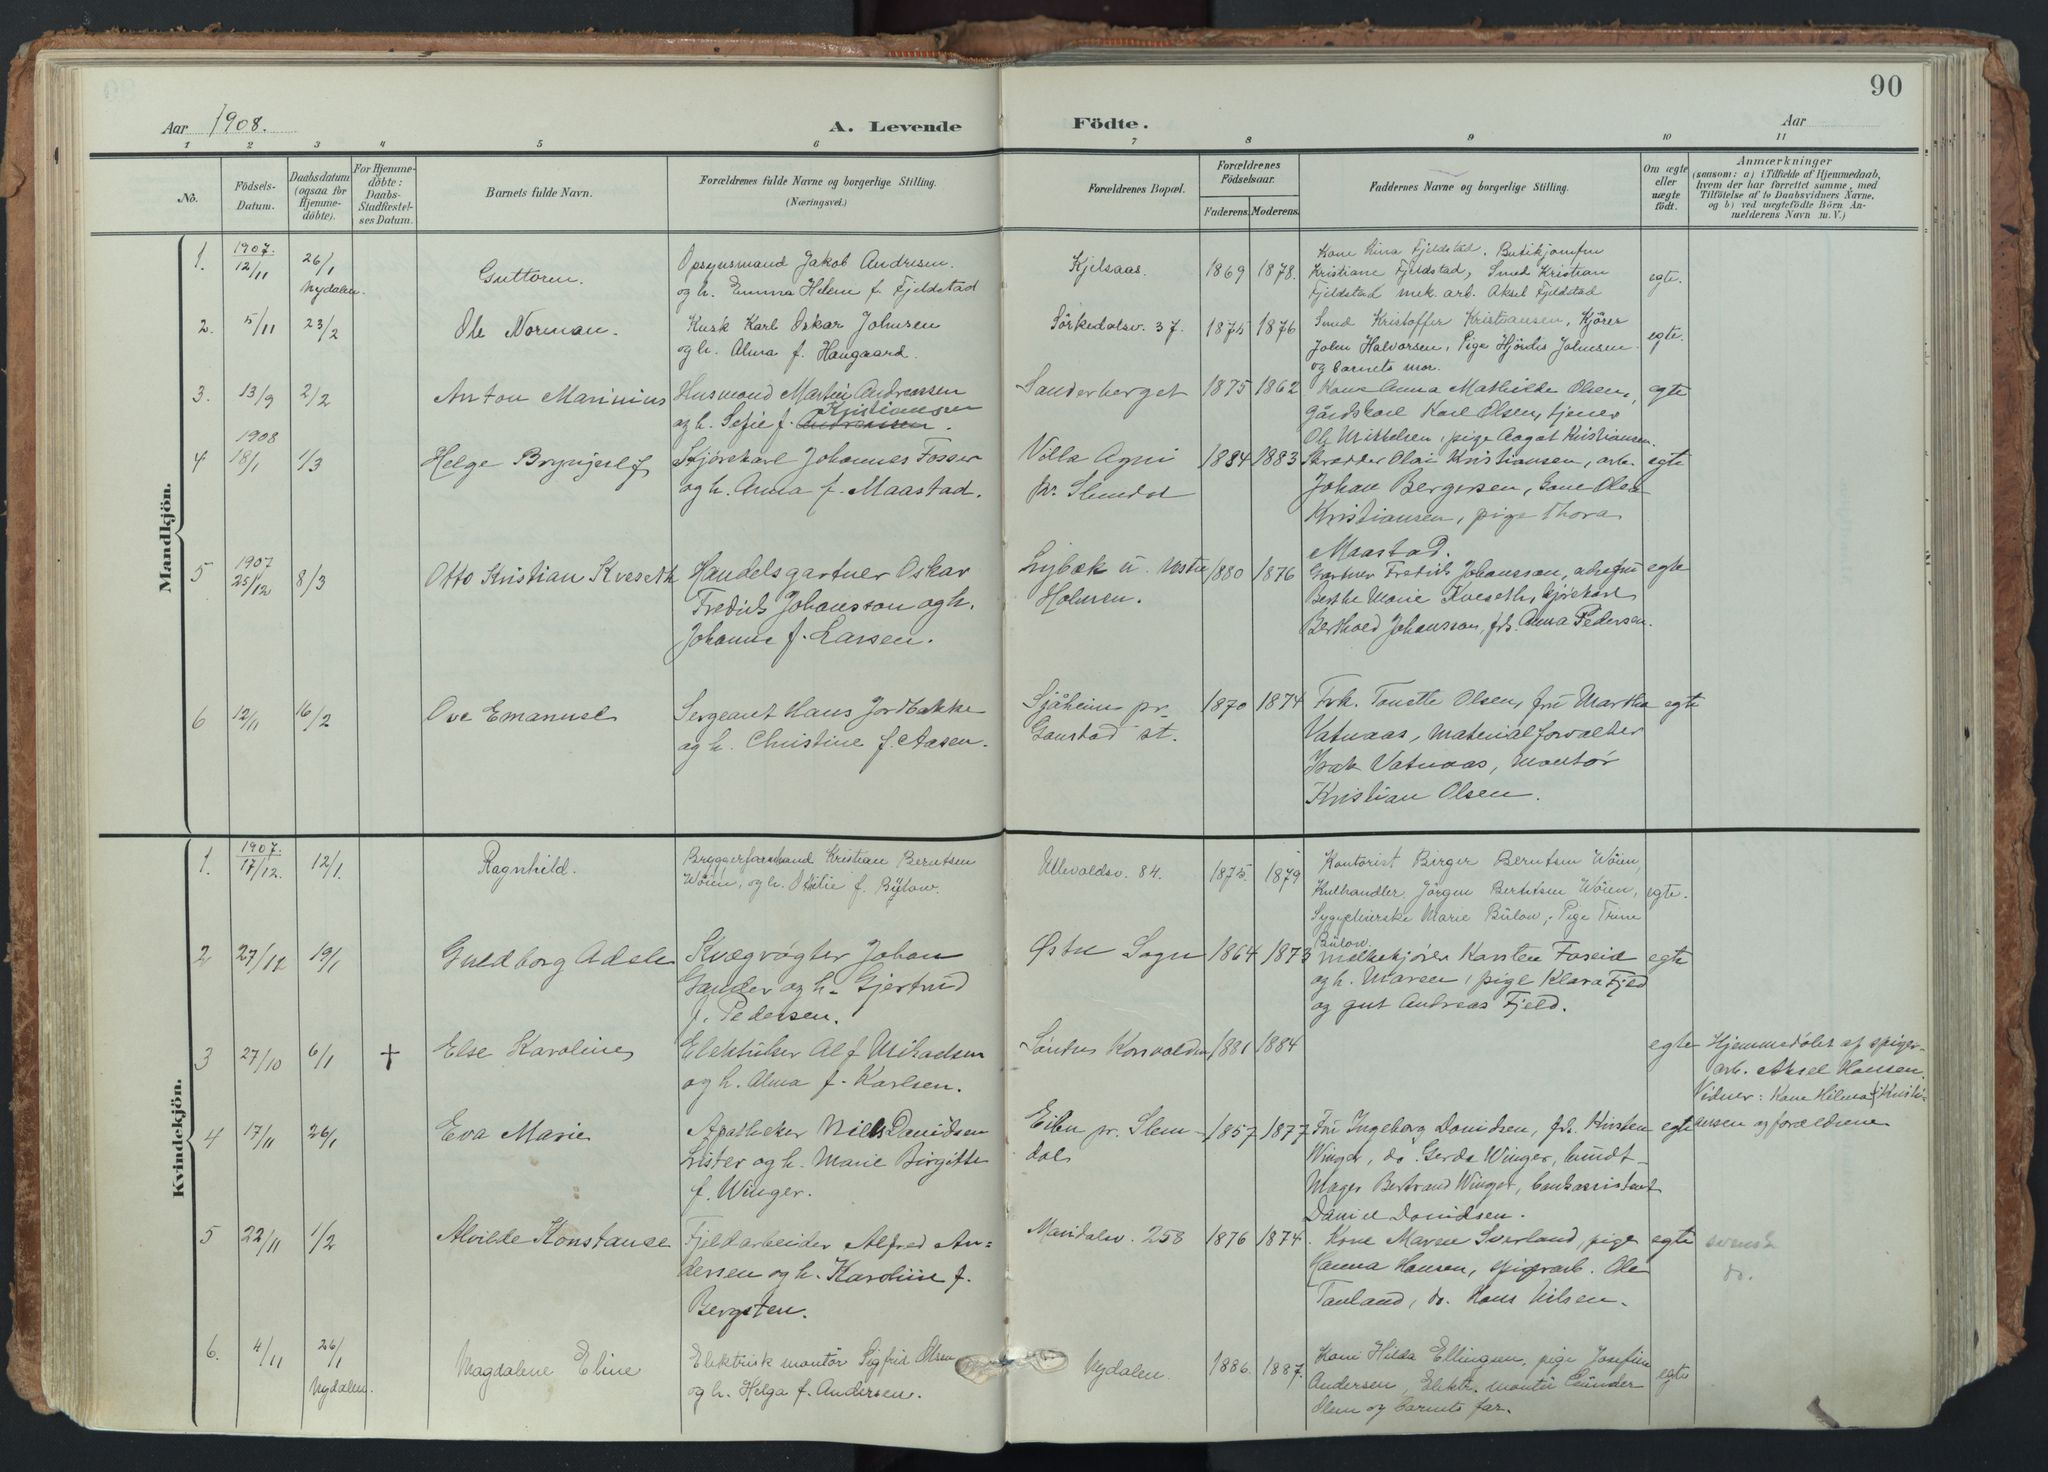 90
Aar 1908.
A. Levende
Födte.
Aar
1 2 3 4 5 6 7 8 9 10 11
No.
Födsels-
Datum.
Daabsdatum
(ogsaa for
Hjemme-
döbte).
For Hjemme-
döbte:
Daabs-
Stadfæstel-
ses Datum.
Barnets fulde Navn.
Forældrenes fulde Navne og borgerlige Stilling.
(Næringsvei.)
Forældrenes Bopæl.
Forældrenes
Födselsaar.
Faderens. Moderens.
Faddernes Navne og borgerlige Stilling.
Om ægte
eller
uægte
födt.
Anmærkninger
(saasom: a) i Tilfælde af Hjemmedaab,
hvem der har forrettet samme, med
Tilföielse af to Daabsvidners Navne,
og b) ved uægtefödte Börn An-
melderens Navn m. V.)
Mandkjön.
1. 1907. 12/11 26/1 Nydalen. Guttorm. Opsynsmand Jakob Andresen.
og h. Emma Helene f. Fjeldstad
Kjelsaas. 1869 1878. Kone Stina Fjeldstad. Butikjomfru
Kristiane Fjeldstad, Smed Kristian
Fjeldstad mek. arb. Aksel Fjeldstad
egte.
2. 5/11 23/2 Ole Norman. Kusk Karl Oskar Johnsen
og h. Alma f. Haugaard.
Sörkedalsv. 37. 1875 1876 Smed Kristoffer Kristiansen, Kjörer
John Halvorsen, Pige Hjördis Johnsen
og barnets mor.
egte.
3. 13/9 2/2 Anton Marinius Husmand Martin Andreassen
og h. Sofie f. Andreassen Kristiansen.
Sanderberget 1875 1862 Kone Anna Mathilde Olsen,
gårdskarl Karl Olsen, tjener
Ole Mikkelsen, pige Aagot Kristiansen.
egte
4 1908 18/1 1/3 Helge Brynjulf Kjörekarl Johannes Fosser
og h. Anna f. Maastad.
Villa Agni
pr. Slemdal
1884 1883 Skrædder Olai Kristiansen, arb.
Johan Bergersen, kone Olea
Kristiansen, pige Thora
Maastad.
egte
5 1907 25/12 8/3 Otto Kristian Kveseth Handelsgartner Oskar
Fredrik Johansson og h.
Johanne f. Larsen.
Lybæk u. Vestre
Holmen.
1880 1876 Gartner Fredrik Johansson,
Berthe Marie Kveseth, kjörekarl
Berthold Johansson, frk. Anna Pedersen.
egte
6 12/11 16/2 Ove Emanuel Sergeant Hans Jordbakke
og h. Christine f. Aasen.
Sjåheim pr.
Gaustad st.
1870 1874 Frk. Tonette Olsen, fru Martha
Vatnaas, materialforvalter
Isak Vatnaas, montör
Kristian Olsen.
egte
Kvindekjön.
1. 1907. 17/12. 12/1. Ragnhild. Bryggerformand Kristian Berntsen
Wöien, og h. Otilie f. Bülow.
Ullevoldsv. 84. 1875. 1879 Kontorist Birger Berntsen Wöien,
Kulhandler Jörgen Berntsen Wöien,
Sygeplierske Marie Bülow, Pige Trine
Bülow.
egte.
2 27/12 19/1 Guldborg Adele Kvægvogter Johan
Gander og h. Gjertrud
f. Pedersen.
Østre Sogn 1864 1873 Melkekjörer Karsten Foseid
og h. Maren, pige Klara Fjeld
og gut Andreas Fjeld.
egte
3 27/10 6/1 + Else Karoline Elektriker Alf Mikaelsen
og h. Alma f. Karlsen.
Söndre Korsvolden 1881 1884 egte Hjemmedöbt af spiger-
arb. Aksel Hansen.
Vidner: Kone Hilma Kristi-
ansen og forældrene
4 17/11 26/1 Eva Marie Apotheker Niels Davidsen
Lister og h. Marie Birgitte
f. Winger.
Eilen pr. Slem-
dal
1857 1877 Fru Ingeborg Davidsen, frk. Kirsten
Winger, do. Gerda Winger, bundt-
mager Bertrand Winger, bankassistent
Daniel Davidsen.
egte
5 22/11 1/2 Alvilde Konstanse Fjeldarbeider Alfred An-
dersen og h. Karoline f.
Bergsten.
Maridalsv. 258 1876 1874. Kone Maren Sverland, pige
Hanna Hansen, spigerarb. Ole
Tauland, do. Hans Nilsen.
egte svensk
do.
6. 4/11 26/1 Nydalen. Magdalene Eline Elektrisk montör Sigfrid Olsen
og h. Helga f. Andersen.
Nydalen. 1886. 1887. Kone Hilda Ellingsen, pige Josefine
Andersen, Elektr. montör Gunder
Olsen og barnets far.
egte